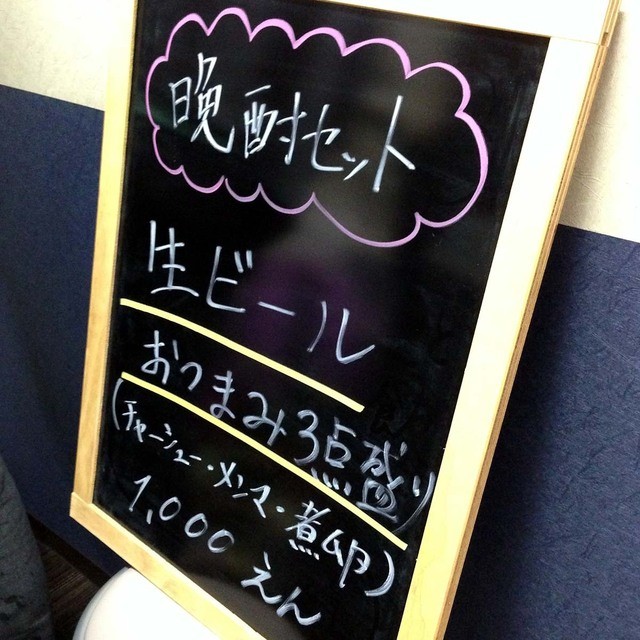 晩酌セット
生ビール
おつまみ3点盛り
(チャーシュー・メンマ・煮卵)
1,000えん